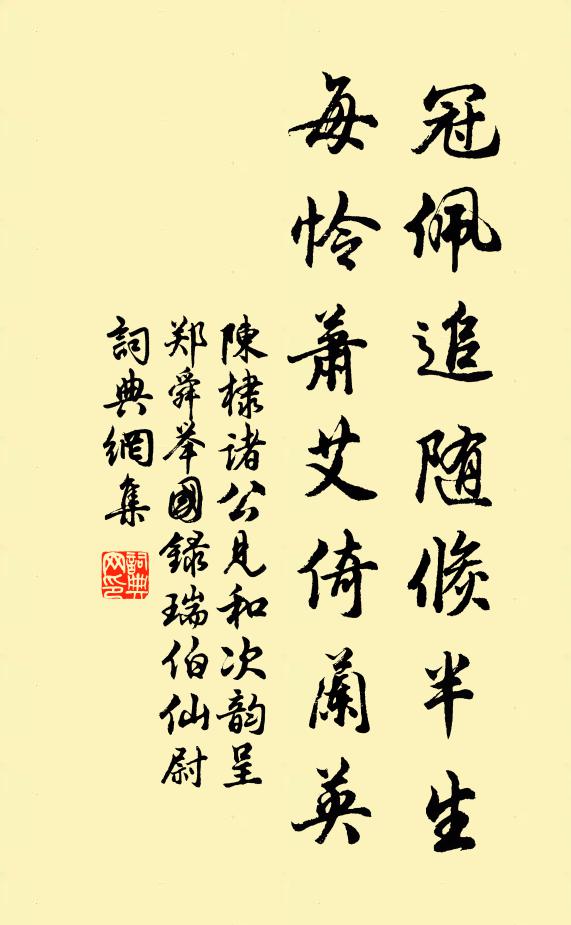 冠佩追随倏半生
每怜萧艾倚蘭英
陳棣諸公見和次韵呈
郑舜举國録瑞伯仙尉
詞典網集
詞典
网印